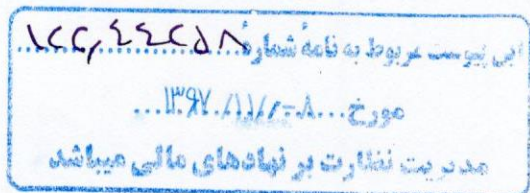 این پیوست مربوط به نامهٔ شمارهٔ ۱۲۲/۴۴۲۵۸
مورخ ... ۸-/۱۱/۱۳۹۷ ...
مدیریت نظارت بر نهادهای مالی میباشد